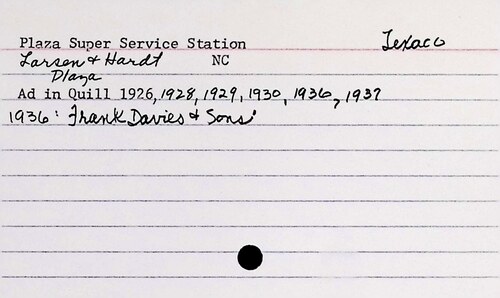 Plaza Super Service Station Texaco
Larsen & Hardt NC
Plaza
Ad in Quill 1926, 1928, 1929, 1930, 1936, 1937
1936: Frank Davies & Sons